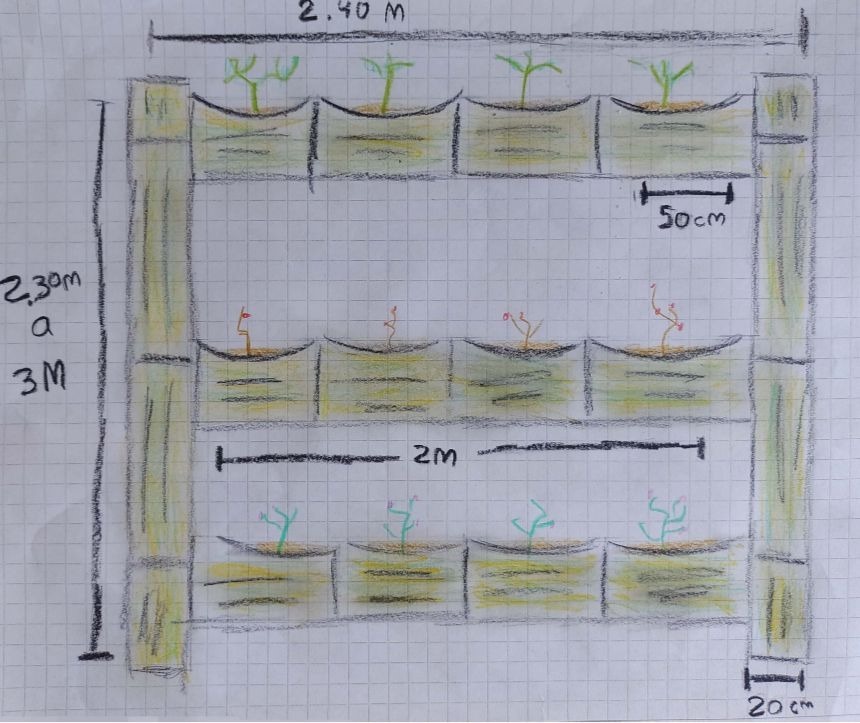 2.40 M
50cm
2.30m
a
3M
2M
20cm